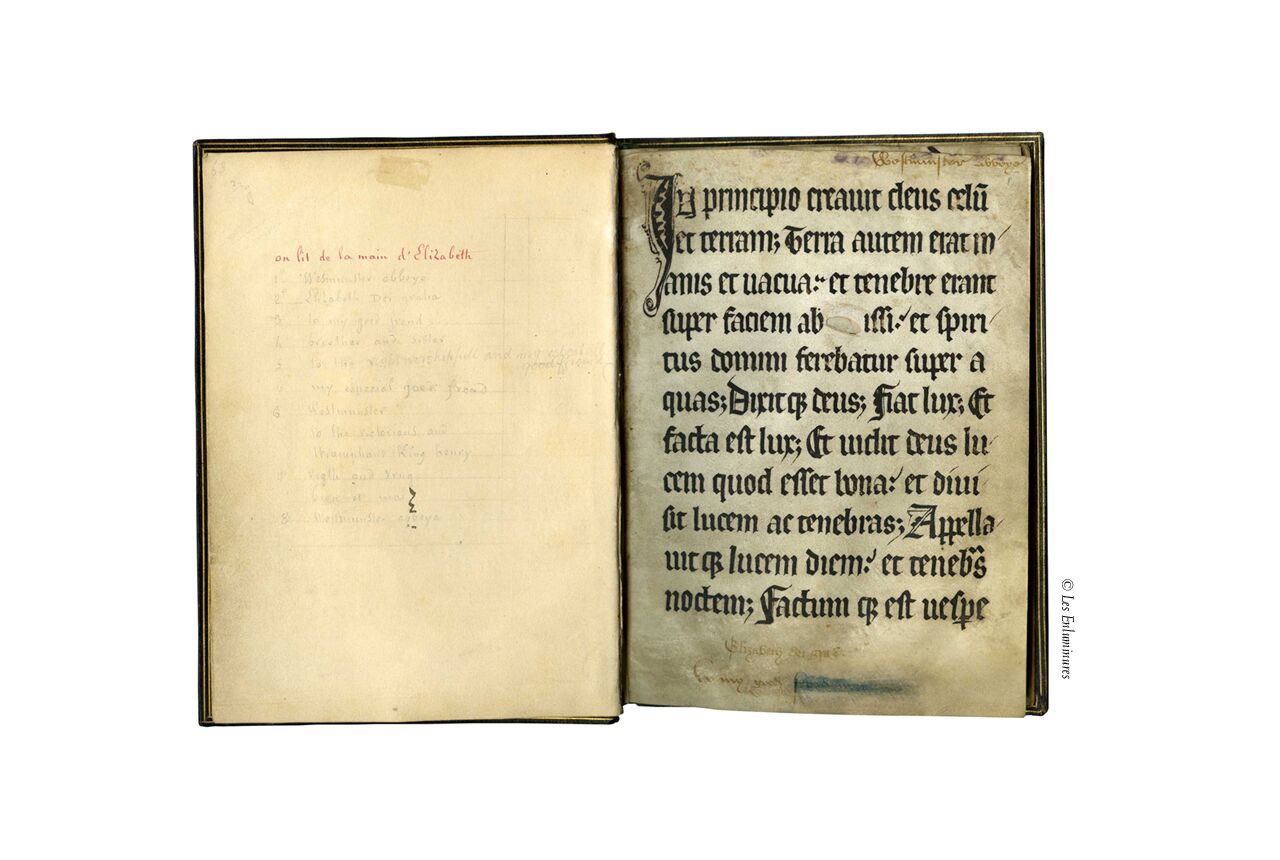 on lit de la main d'Elizabeth
1 Westminster abbeye
2 Elizabeth Dei gratia
3 to my good frend
4 broother and sister
5 to the right worshepfull and my especially
good friend
6 my especial good frend
6 Westminster
to the victorious and
triumphant King henry
8 Westminster abbeye
Westminster abbeye
In principio creauit deus celū
et terram; Terra autem erat in
anis et uacua: et tenebre erant
super faciem ab issi: et spiri
tus domini ferebatur super a
quas; Dixitqꝫ deus; Fiat lux; Et
facta est lux; Et uidit deus lu
cem quod esset bona: et diui
sit lucem ac tenebras; Appella
uitqꝫ lucem diem: et tenebās
noctem; Factumqꝫ est uespe
Elizabeth dei gra
to my good
© Les Enluminures